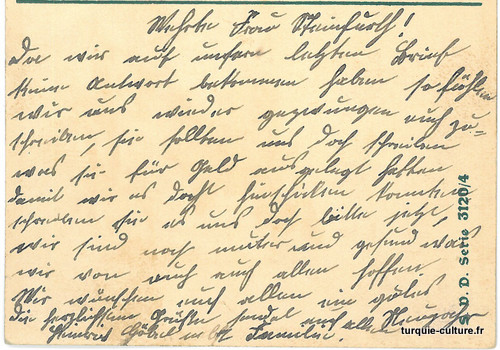 Wehrte Frau Steinfurth!
Da wir auf unsern letzten Brief
keine Antwort bekommen haben so fühlen
wir uns wieder gezwungen euch zu=
schreiben, sie sollten uns doch schreiben
was sie für Geld ausgelegt hatten
damit wir es doch hinschicken konnten
schreiben sie es uns doch bitte jetzt,
wir sind noch munter und gesund was
wir von euch auch allen hoffen.
Wir wünschen euch allen ein gutes
die herzlichsten Grüße sendet euch alle Neugoster
Heinrich Göbel nebst Familie.
S. V. D. Serie 3120/4
turquie-culture.fr